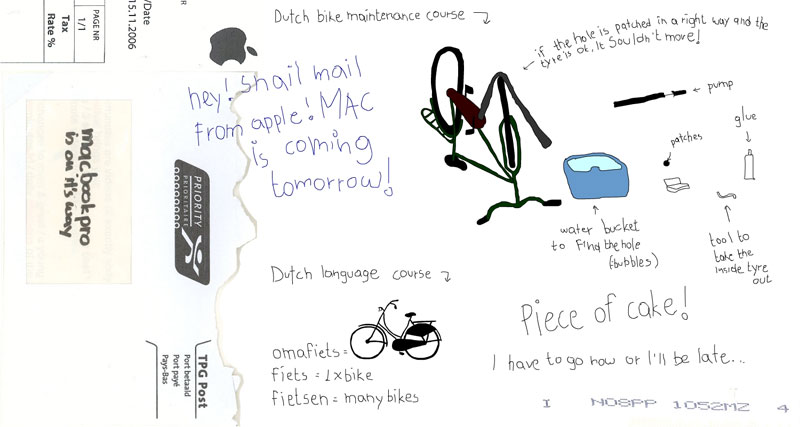 /Date
15.11.2006
R
PAGE NR
1/1
Tax
Rate %
macbookpro
is on it's way
PRIORITY
PRIORITAIRE
TPG Post
Port betaald
Port payé
Pays-Bas
hey! snail mail
from apple! MAC
is coming
tomorrow!
Dutch bike maintenance course
if the hole is patched in a right way and the
tyre is ok, it souldn't move!
pump
glue
patches
water bucket
to find the hole
(bubbles)
tool to
take the
inside tyre
out
Dutch language course
omafiets =
fiets = 1xbike
fietsen = many bikes
Piece of cake!
I have to go now or I'll be late...
I NO8PP 1052MZ 4